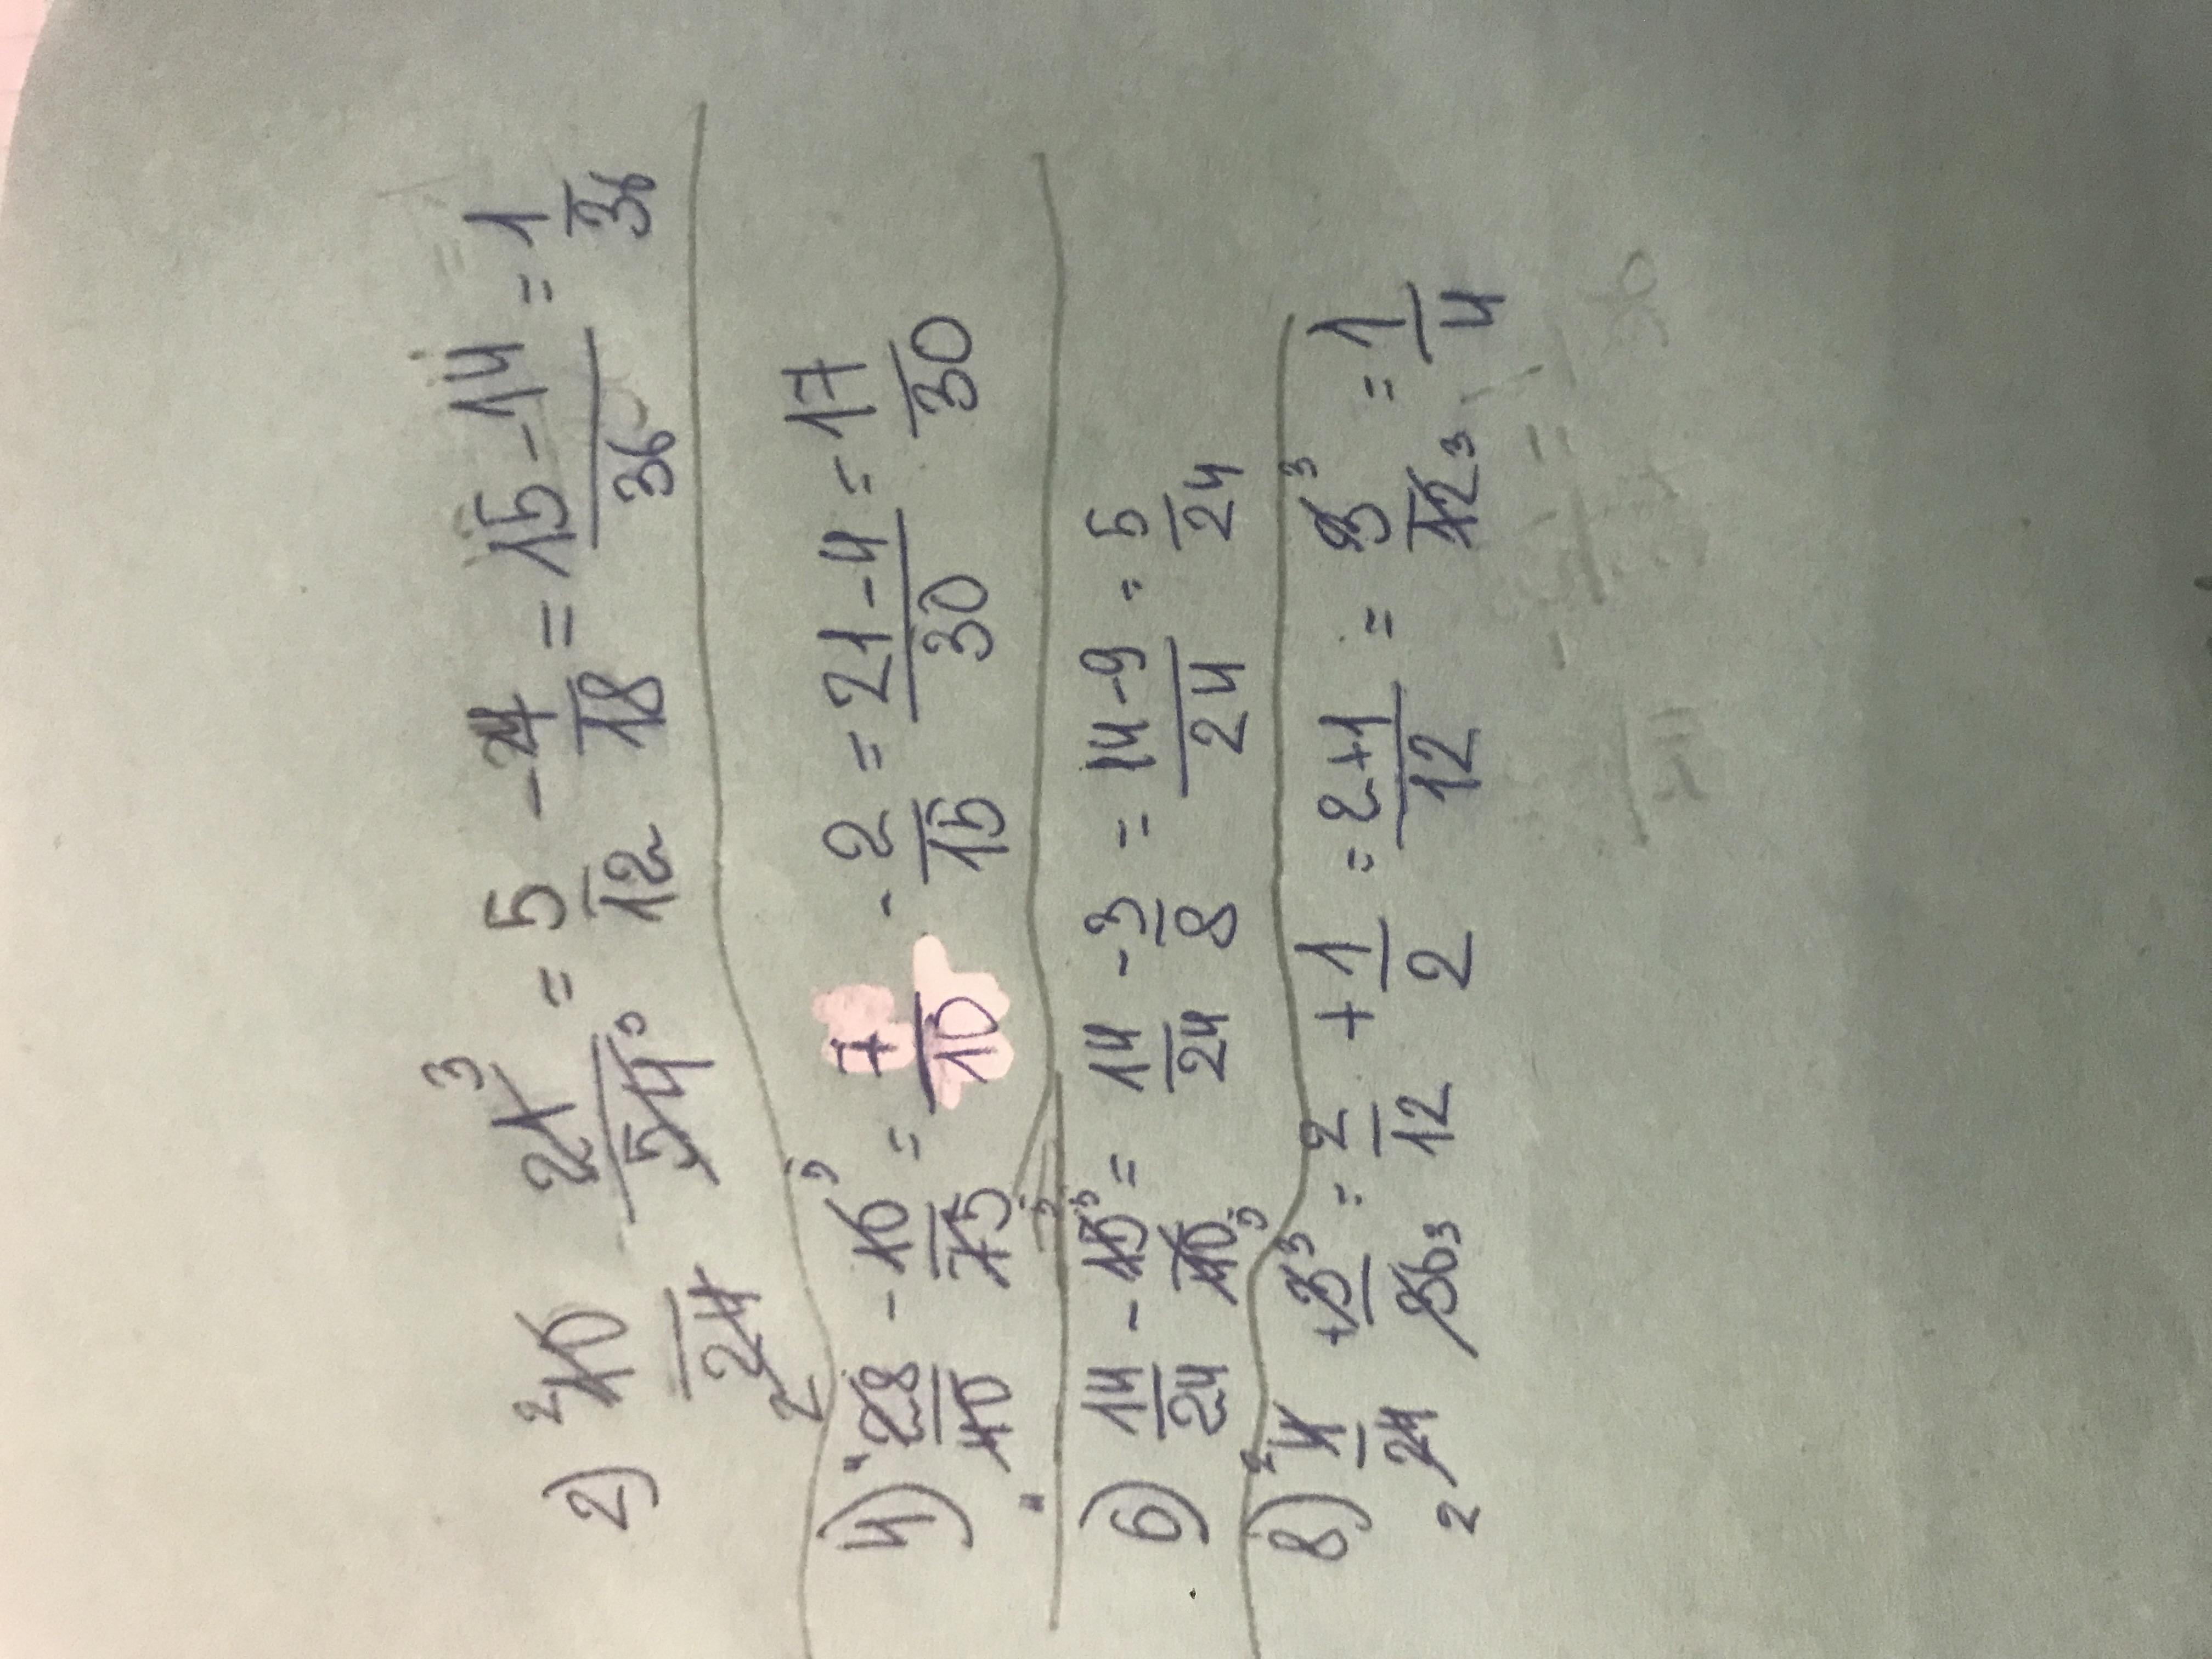 2) ²10/24 21³/54⁹ = 5/12 - 7/18 = 15-14/36 = 1/36
4) ⁴28/40₄ - 10⁵/75₅ = 7/10 - 2/15 = 21-4/30 = 17/30
6) 14/24 - 15⁵/40₅ = 14/24 - 3/8 = 14-9/24 = 5/24
8) ²4/24₂ + 3³/36₃ = 2/12 + 1/2 = 2+1/12 = 3³/12₃ = 1/4